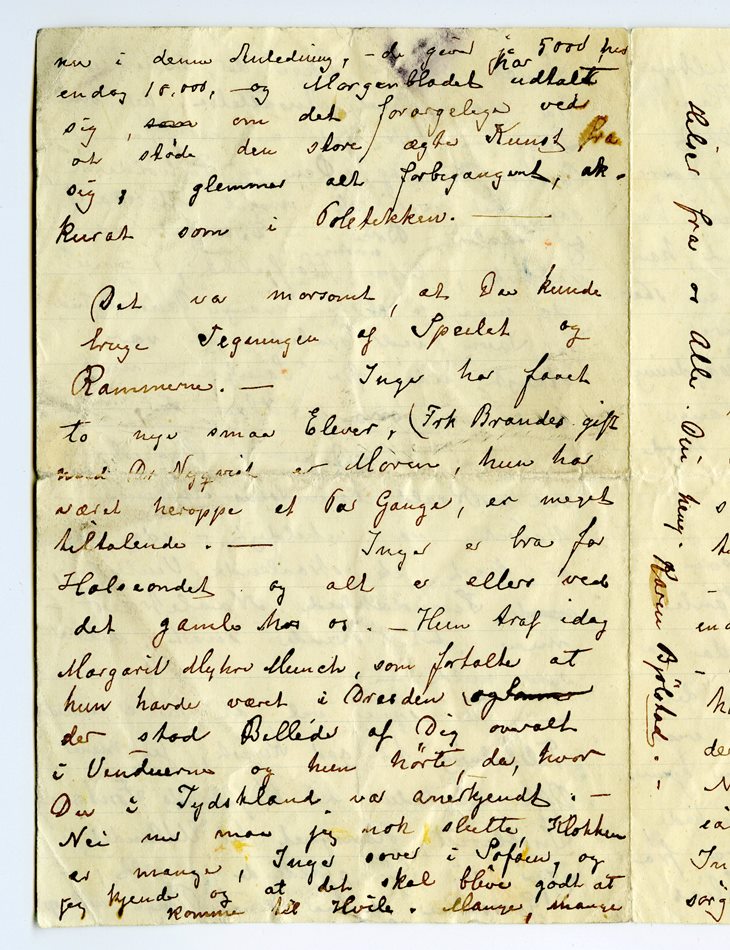 nu i denne Anledning, – de giver jo 5000 per
endog 18.000, – og Morgenbladet har udtalt
sig, som om det forargelige ved
at støde den store, ægte Kunst fra
sig, glemmer alt forbegangent, ak-
kurat som i Poletikken. –
Det var morsomt, at Du kunde
bruge Tegningen af Speilet og
Rammerne. – Inger har faaet
to nye smaa Elever, (Frk Brandes gift
med Dr Nyqvist er Moren, hun har
været heroppe et Par Gange, er meget
tiltalende. – Inger er bra for
Halseondet og alt er ellers ved
det gamle hos os. – Hun traf idag
Margarit Myhre Munch, som fortalte at
hun havde været i Dresden
der stod Billeder af Dig overalt
i Vinduerne og hun hörte, da, hvor
Du i Tydskland var anerkjendt. –
Nei nu maa jeg nok slutte, Klokken
er mange, Inger sover i Sofaen, og
jeg kjender og at det skal blive godt at
komme til Hvile. Mange, mange
Hilser fra os Alle. Din heng. Karen Bjölstad. –